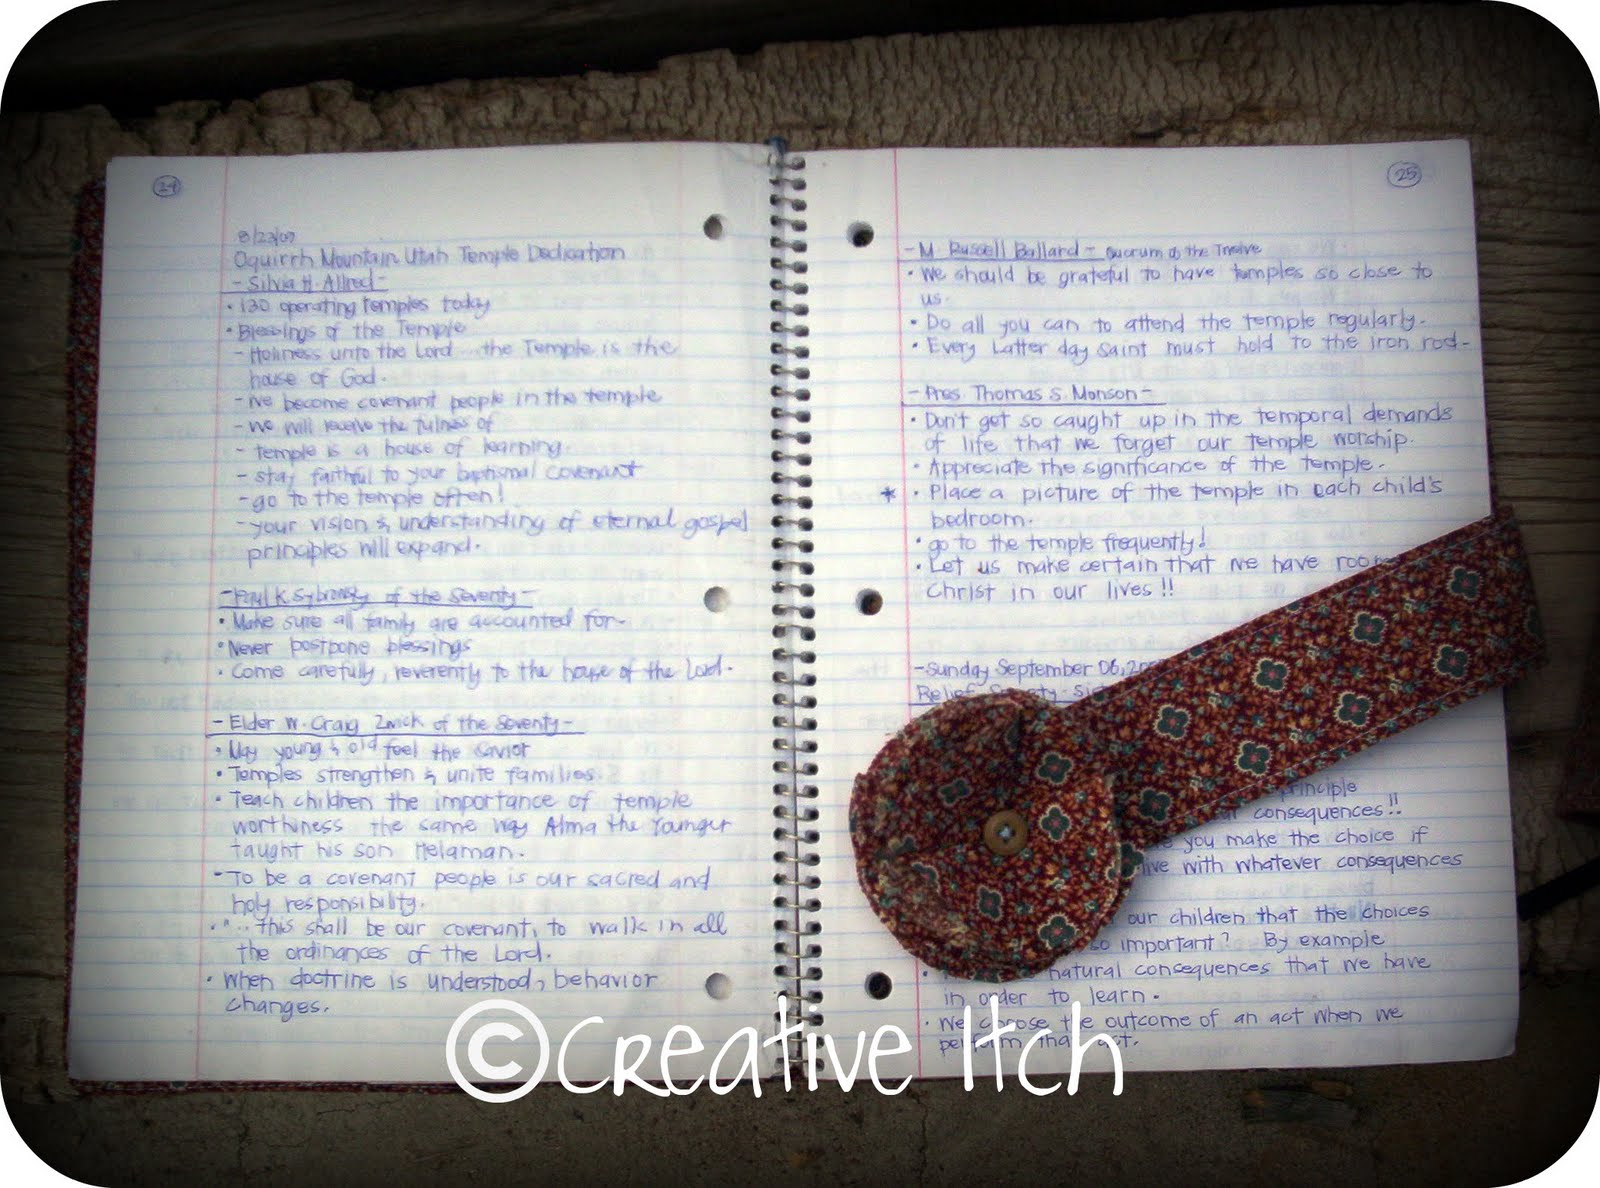 24
8/23/09
Oquirrh Mountain Utah Temple Dedication
- Silvia H. Allred -
• 130 operating temples today
• Blessings of the Temple
- Holiness unto the Lord... the Temple is the
house of God.
- We become covenant people in the temple
- We will receive the fulness of
- temple is a house of learning.
- stay faithful to your baptismal covenant
- go to the temple often!
- your vision & understanding of eternal gospel
principles will expand.
- Paul K. Sybrowsky of the Seventy -
• Make sure all family are accounted for.
• Never postpone blessings
• Come carefully, reverently to the house of the Lord.
- Elder W. Craig Zwick of the Seventy -
• May young & old feel the savior
• Temples strengthen & unite families.
• Teach children the importance of temple
worthiness the same way Alma the Younger
taught his son Helaman.
- To be a covenant people is our sacred and
holy responsibility.
• "... this shall be our covenant, to walk in all
the ordinances of the Lord.
• When doctrine is understood, behavior
changes.
25
- M. Russell Ballard - Quorum of the Twelve
• We should be grateful to have temples so close to
us.
• Do all you can to attend the temple regularly.
• Every Latter day Saint must hold to the iron rod -
- Pres. Thomas S. Monson -
• Don't get so caught up in the temporal demands
of life that we forget our temple worship.
• Appreciate the significance of the temple.
* • Place a picture of the temple in each child's
bedroom.
• go to the temple frequently!
• Let us make certain that we have room
Christ in our lives!!
- Sunday September 06, 20
Relief Society -
principle
consequences!!
you make the choice if
live with whatever consequences
our children that the choices
so important? By example
natural consequences that we have
in order to learn.
• We choose the outcome of an act when we
perform that act.
©Creative Itch